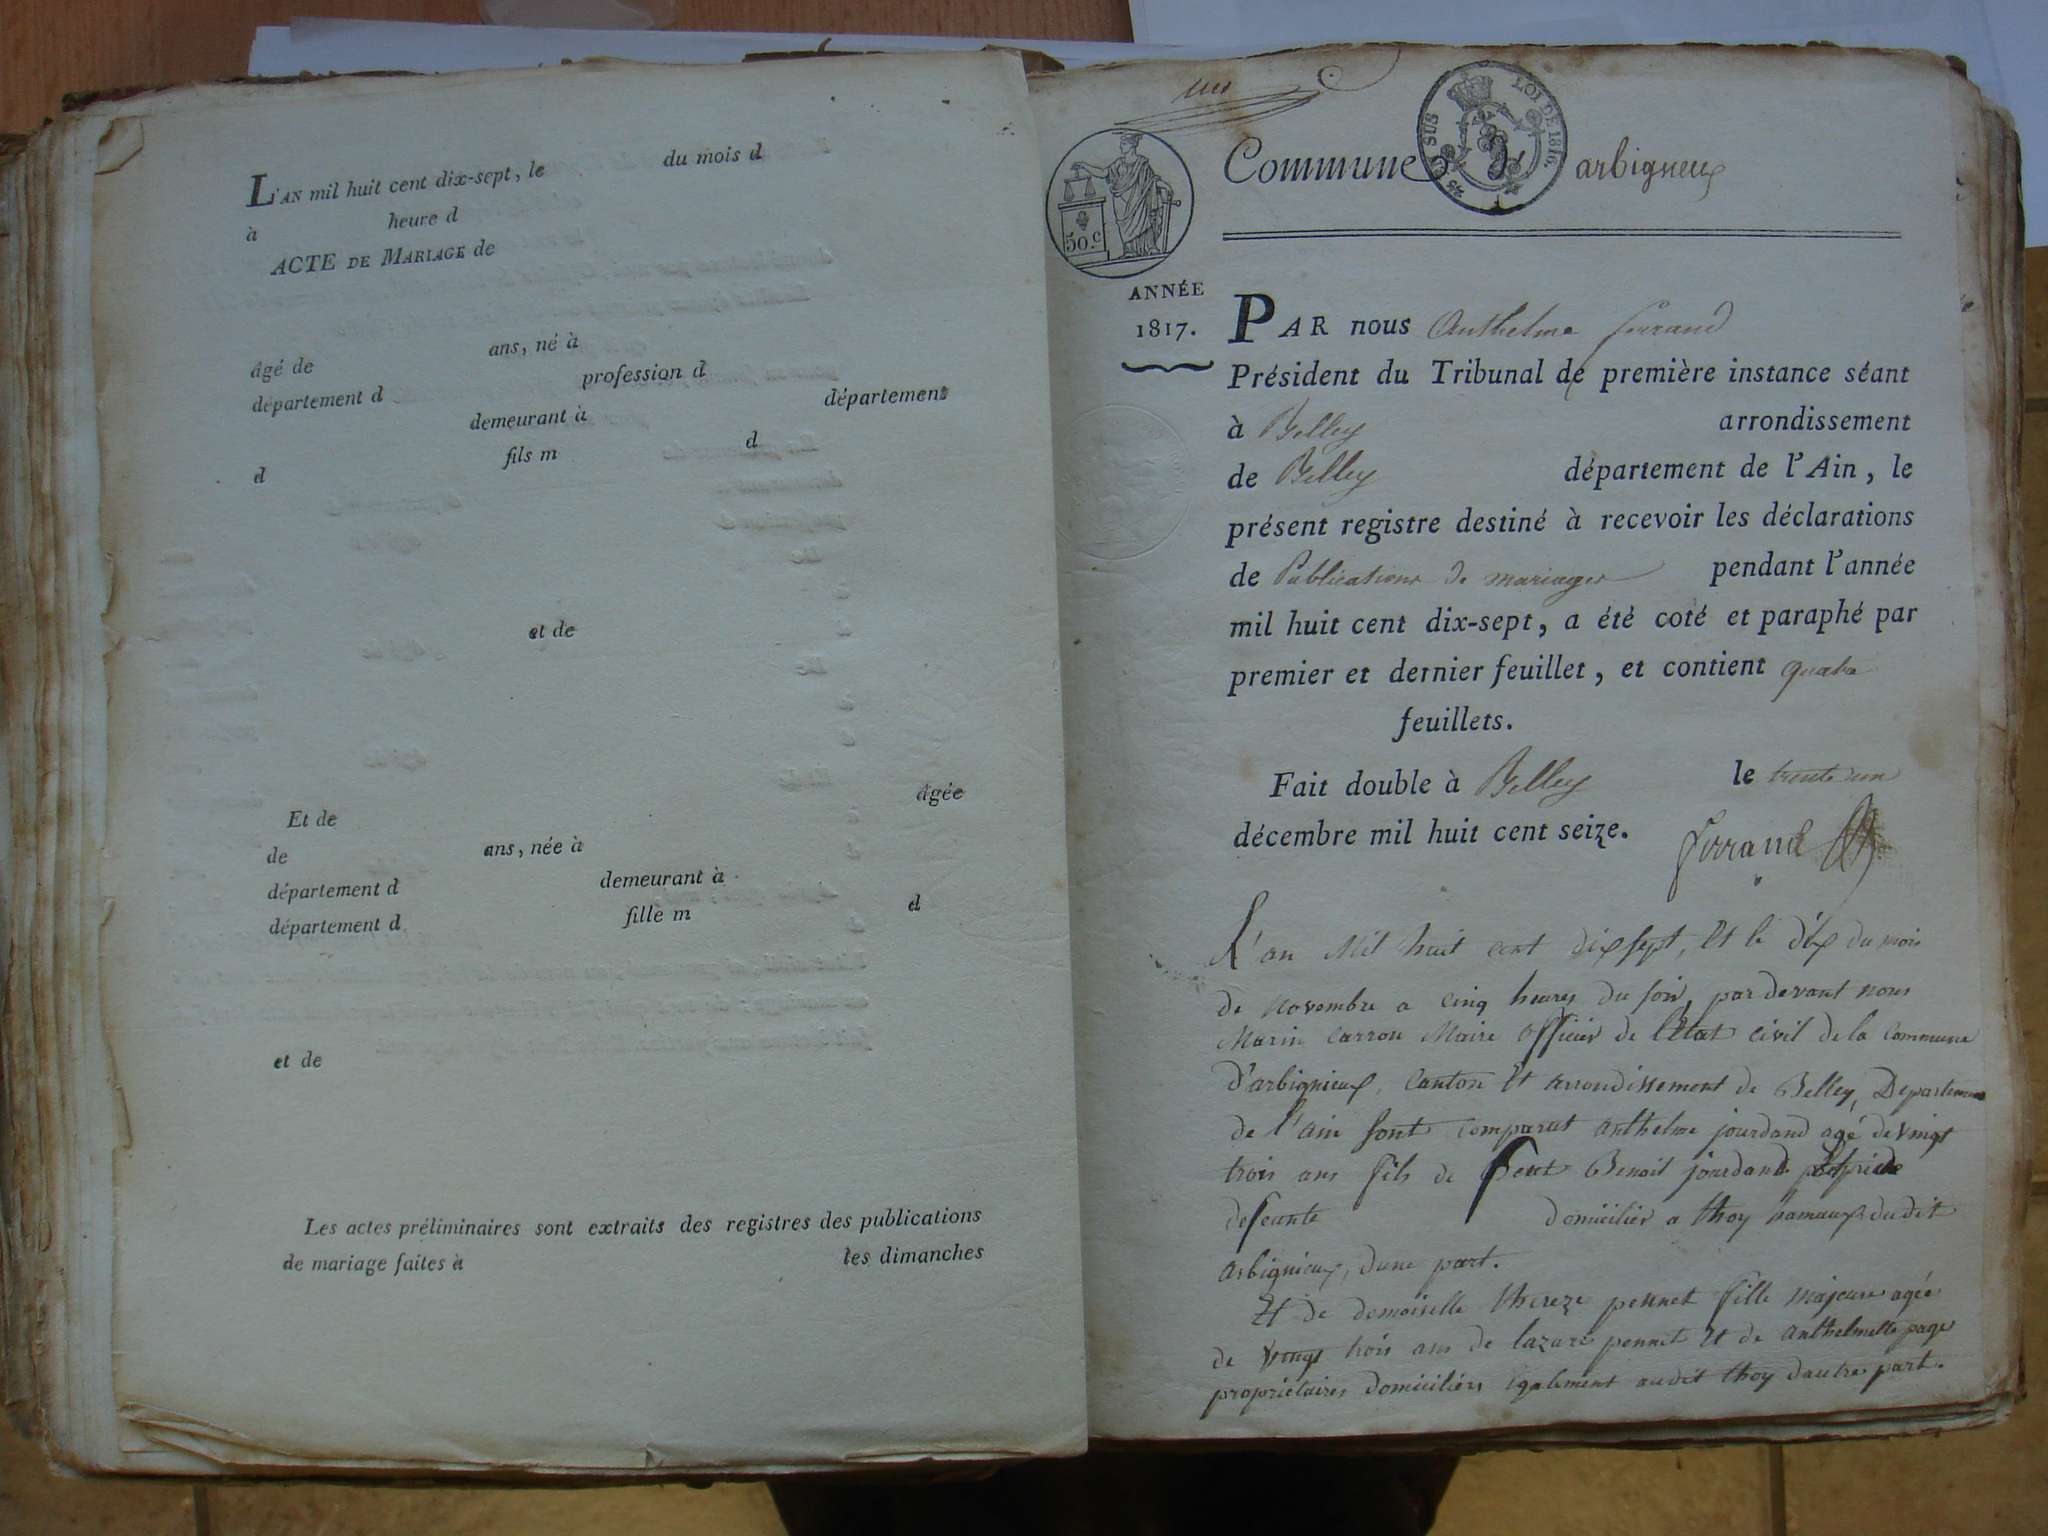 L'AN mil huit cent dix-sept, le du mois d
à heure d
ACTE DE MARIAGE de
âgé de ans, né à
département d profession d
demeurant à département
d fils m d
et de
Et de âgée
de ans, née à
département d demeurant à
département d fille m d
et de
Les actes préliminaires sont extraits des registres des publications
de mariage faites à les dimanches
un
SUS LOI DE 1816.
50.c
Commune d arbigneux
ANNÉE
1817.
PAR nous Anthelme ferrand
Président du Tribunal de première instance séant
à Belley arrondissement
de Belley département de l'Ain, le
présent registre destiné à recevoir les déclarations
de Publications de mariages pendant l'année
mil huit cent dix-sept, a été coté et paraphé par
premier et dernier feuillet, et contient quatre
feuillets.
Fait double à Belley le trente un
décembre mil huit cent seize.
ferrand
L'an Mil huit cent dix sept, Et le dix du mois
de novembre a cinq heures du soir, par devant nous
Marin Carrou Maire Officier de l'Etat civil de la commune
d'arbignieux, canton Et arrondissement de Belley, Departement
de l'ain sont comparut anthelme jourdand agé de vingt
trois ans fils de feut Benoit jourdand
defeunte domicilier a thoy hamaux dudit
arbignieux, dune part.
Et de demoiselle thereze pennet fille majeure agée
de vingt trois ans de lazare pennet Et de anthelmette page
proprietaires domiciliers egalement audit thoy dautre part.